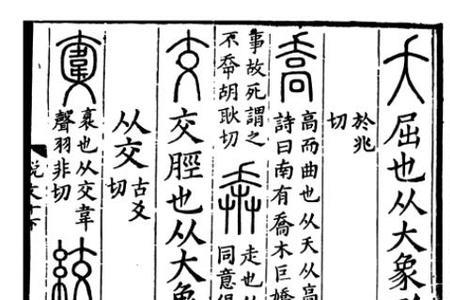 夭屈也从大象
於兆
切
喬高而曲也从夭从高
詩曰南有喬木巨嬌
事故死謂之
不㚔胡耿切
奔走也从
同意俱
交交脛也从大象
从交古爻
切
褱也从交韋
聲羽非切
絞
說文十下